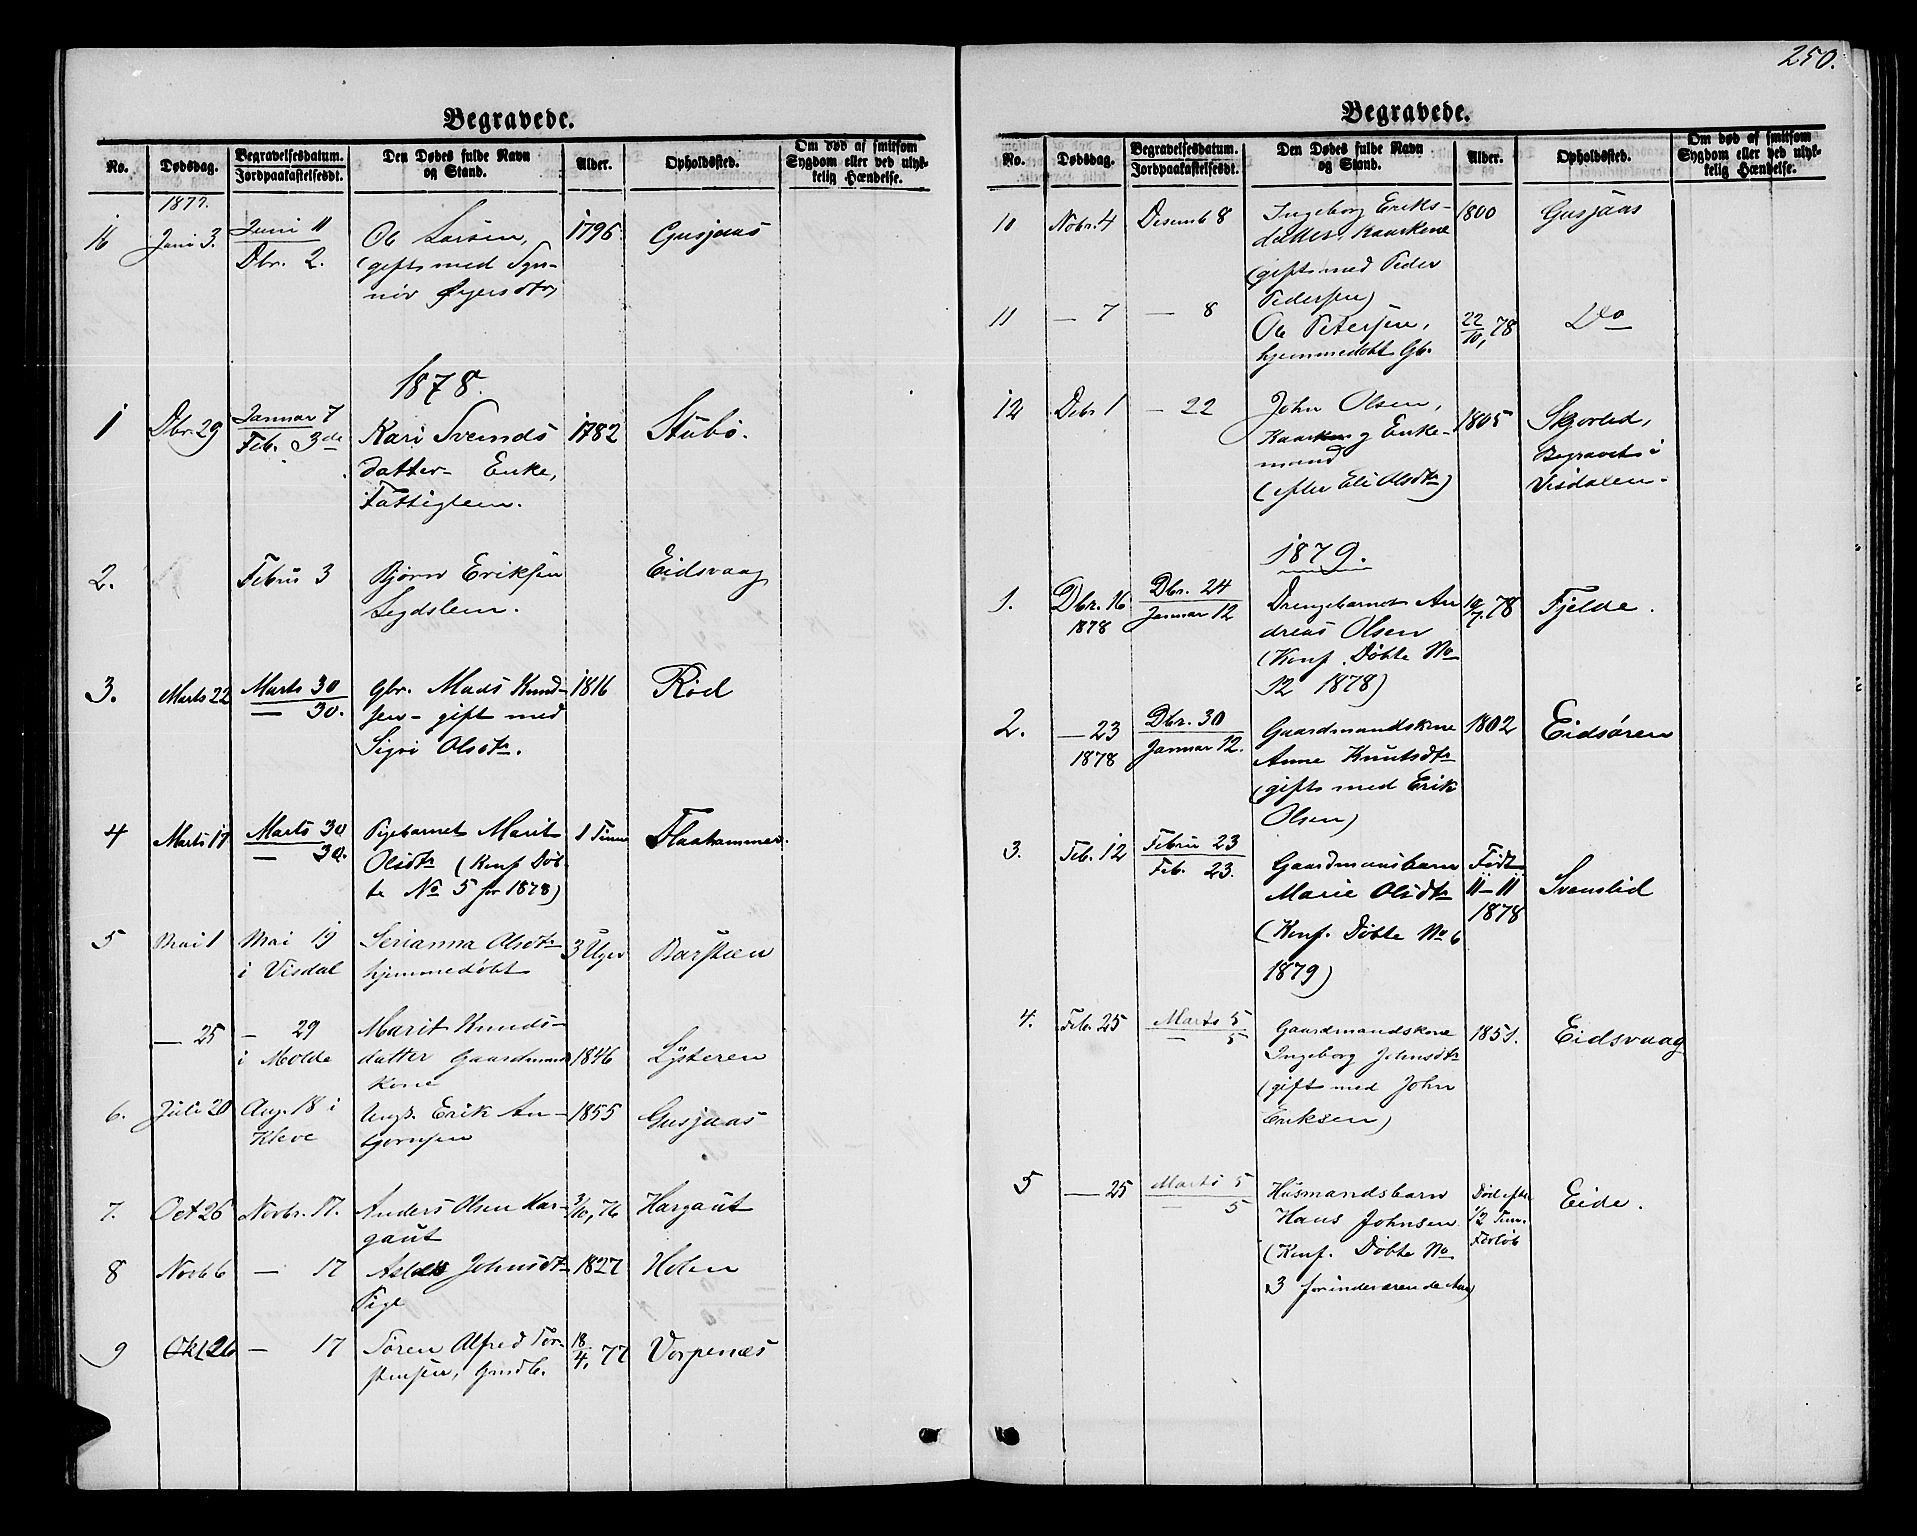 250.
Begravede.
No. Dødsdag. Begravelsesdatum. Jordpaakastelsesdt. Den Dødes fulde Navn og Stand. Alder. Opholdssted. Om død af smitsom Sygdom eller ved ulykkelig Hændelse.
1877.
16 Juni 3. Juni 11 Ole Larsen, 1795 Gusjaas
Dbr. 2. (gift med Syn-
növ
1878.
1 Dbr. 29 Januar 7 Kari Svends 1782 Stubö.
Feb. 3de datter- Enke,
Fattiglem.
2. Febru 3 Bjørn Eriksen Eidsvaag
Legdslem.
3. Marts 22 Marts 30 Gbr. Mads Knud- 1816 Röd
— 30. sen- gift med
Sigri Olsdtr.
4 Marts 17 Marts 30 Pigebarnet Marit 1 Time Flaahammer.
— 30. Olsdtr (Konf Døb-
te No 5 for 1878)
5 Mai 1 Mai 19 Serianna Olsdtr 3 Uger Barstein
i Visdal hjemmedøbt
— 25 — 29 Marit Knuds-
i Molde datter Gaardmands 1846 Lysteren
kone
6. Juli 20 Aug. 18 i Ungk. Erik An- 1855 Gusjaas
Kleve bjørnsen
7. Oct 26 Novbr. 17. Anders Olsen Har- 3/10, 76 Hargaut
gaut
8 Novb 6 — 17 Johnsdtr 1827 Holen
Pige
9 Okt 26 — 17 Sören Alfred Tor- 18/4, 77 Vorpenæs
stensen, Gmdb.
Begravede.
No. Dødsdag. Begravelsesdatum. Jordpaakastelsesdt. Den Dødes fulde Navn og Stand. Alder. Opholdssted. Om død af smitsom Sygdom eller ved ulykkelig Hændelse.
10 Nobr. 4 Desemb 8 Ingeborg Eriks- 1800 Gusjaas
datter, Kaarkone
(gift med Peder
Pedersen)
11 — 7 — 8 Ole Petersen, 22/10, 78 Do
hjemmedøbt Gb.
12 Debr 1 — 22 John Olsen, 1805 Skjorlid,
Enke- Begravet i
mand Visdalen.
(efter Eli Olsdtr)
1879.
1. Dbr. 16 Dbr. 24 Drengebarnet An 19/7, 78 Fjelde.
1878 Januar 12 dreas Olsen
(Konf. Døbte No
12 1878)
2. — 23 Dbr. 30 Gaardmandskone 1802 Eidsøren
1878 Januar 12. Anne Knutsdtr
(gift med Erik
Olsen)
3. Feb. 12 Febru 23 Gaardmansbarn Født
Feb. 23. Marie Olsdtr 11-11 Svanslid
(Konf. Døbte No 6 1878
1879)
4. Feb. 25 Marts 5 Gaardmandskone 1851. Eidsvaag
— 5 Ingeborg Johnsdtr
(gift med John
Eriksen)
5 — 25 Marts 5 Husmandsbarn Død efter Eide.
— 5 Hans Johnsen 1/2 Tim.
(Konf. Døbte No Forløb
3 for indeværende Aar)